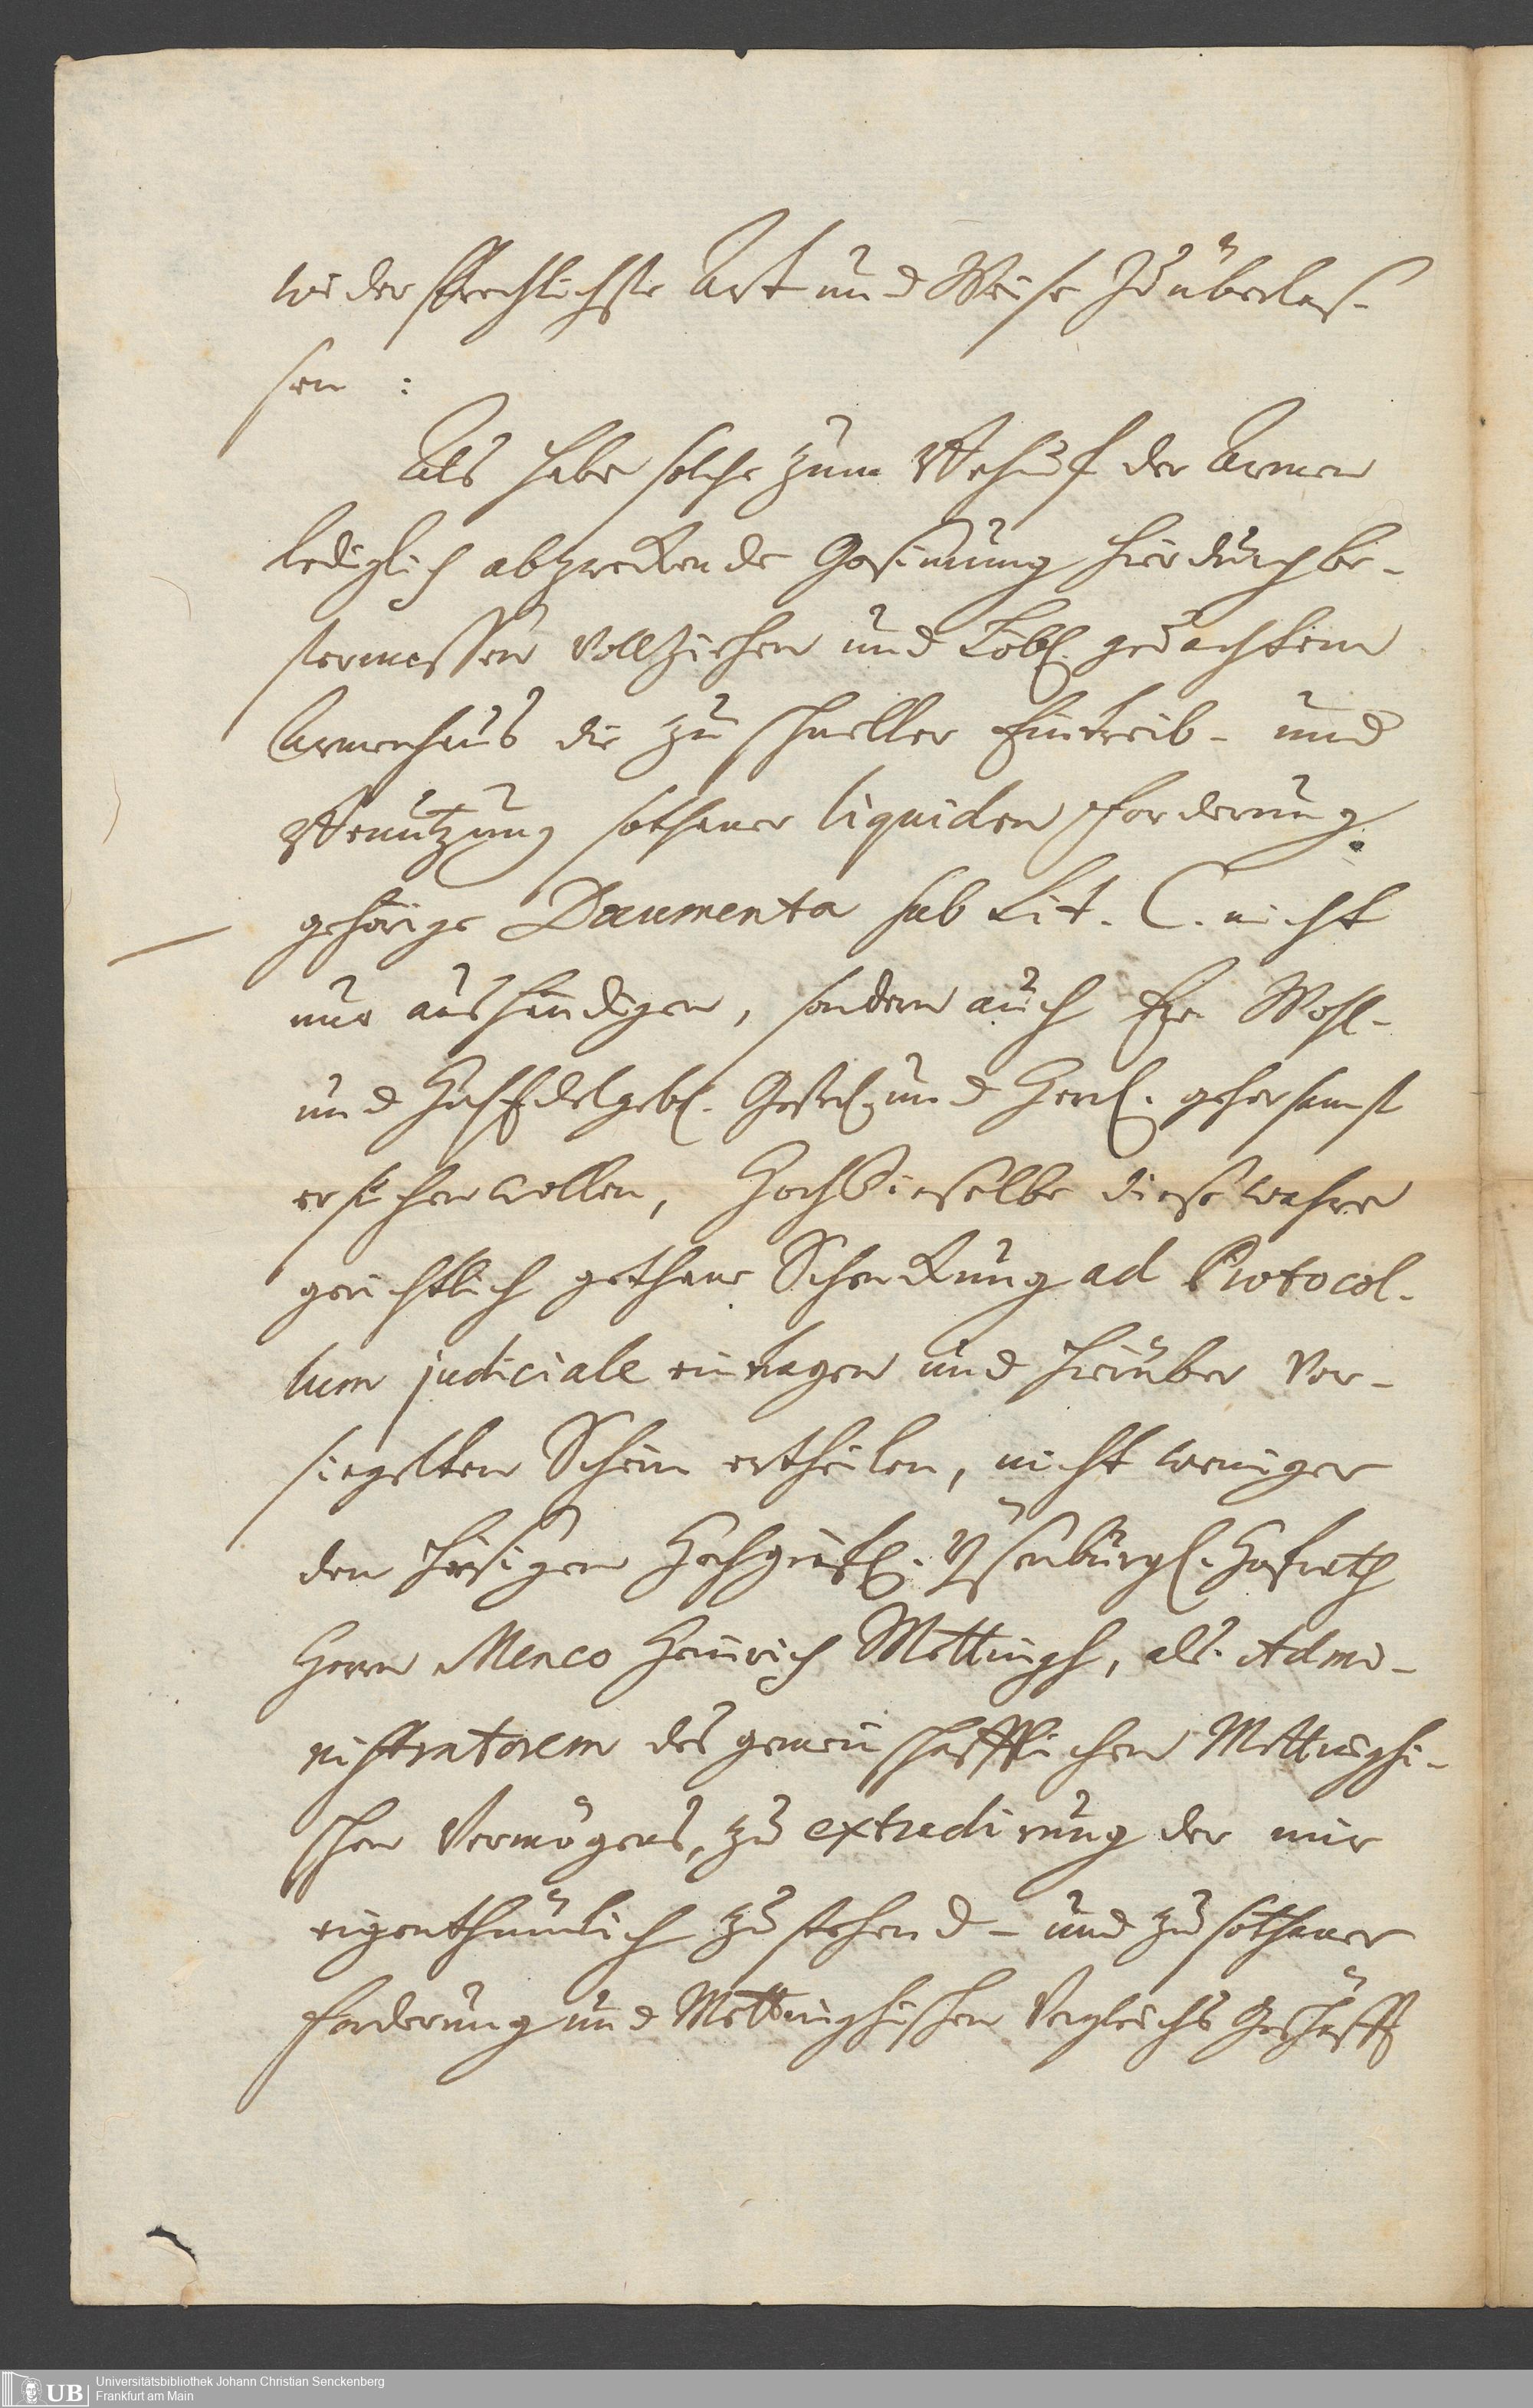 wiedersprechlichste Art und Weise zu überlas-
sen :
Als habe solche zum Behuf der Armen
lediglich abzweckende Gesinnung hierdurch be-
stermassen vollziehen und Löbl. gedachtem
Armenhaus die zu schneller Eintreib- und
Benutzung sothaner liquiden Forderung
gehörige Documenta sub Lit. C. nicht
nur aushändigen, sondern auch Ew. Wohl-
und HochEdelgebl. Gestr. und Herrl. gehorsamst
ersuchen wollen, Hochdieselbe diese wahre
gerichtlich gethane Schenckung ad Protocol-
lum judiciale eintragen und hierüber ver-
siegelten Schein ertheilen, nicht weniger
den hiesigen Hochgräfl. Ysenburgl. Hofrath
Herrn Menco Heinrich Mettingh, als Admi-
nistratorem des gemeinschafftlichen Mettinghi-
schen Vermögens, zu extradirung der mir
eigenthümlich zustehend- und zu sothaner
Forderung und Mettinghischen Vergleichs Geschäfft
Universitätsbibliothek Johann Christian Senckenberg
Frankfurt am Main